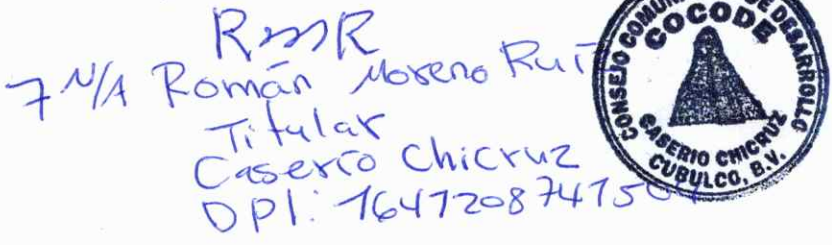 RMR
7 N/A Román Moreno Ruiz
Titular
Caserío Chicruz
DPI: 1641208741504
CONSEJO COMUNITARIO DE DESARROLLO
COCODE
CASERIO CHICRUZ
CUBULCO, B.V.